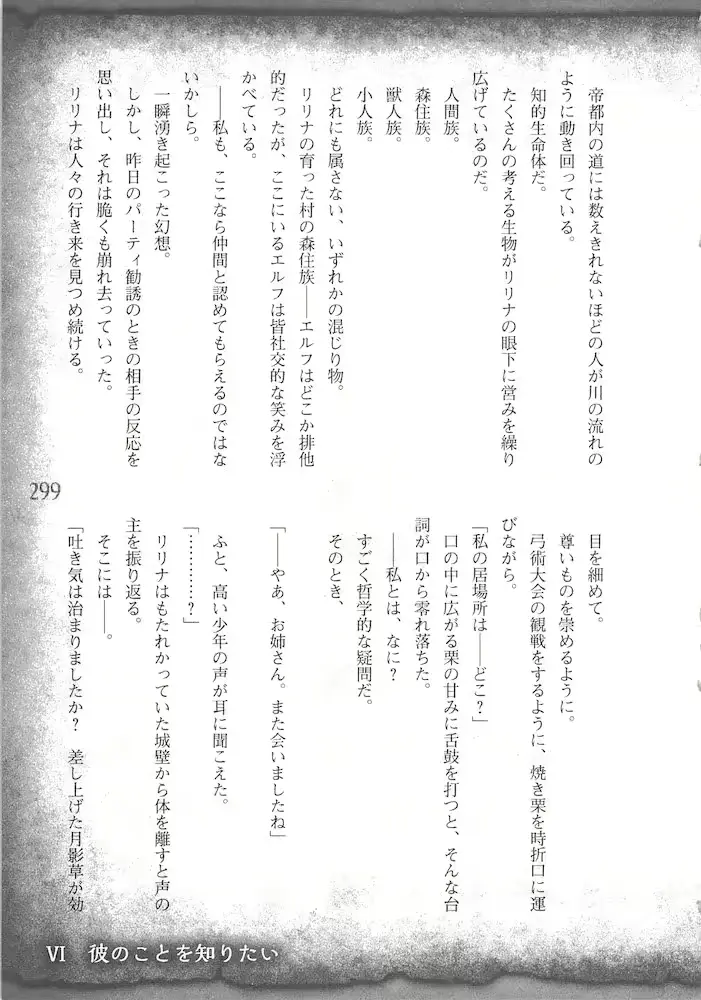 帝都内の道には数えきれないほどの人が川の流れの
ように動き回っている。
知的生命体だ。
たくさんの考える生物がリリナの眼下に営みを繰り
広げているのだ。
人間族。
森住族。
獣人族。
小人族。
どれにも属さない、いずれかの混じり物。
リリナの育った村の森住族――エルフはどこか排他
的だったが、ここにいるエルフは皆社交的な笑みを浮
かべている。
――私も、ここなら仲間と認めてもらえるのではな
いかしら。
一瞬湧き起こった幻想。
しかし、昨日のパーティ勧誘のときの相手の反応を
思い出し、それは脆くも崩れ去っていった。
リリナは人々の行き来を見つめ続ける。
目を細めて。
尊いものを崇めるように。
弓術大会の観戦をするように、焼き栗を時折口に運
びながら。
「私の居場所は――どこ？」
口の中に広がる栗の甘みに舌鼓を打つと、そんな台
詞が口から零れ落ちた。
――私とは、なに？
すごく哲学的な疑問だ。
そのとき、
「――やあ、お姉さん。また会いましたね」
ふと、高い少年の声が耳に聞こえた。
「…………？」
リリナはもたれかっていた城壁から体を離すと声の
主を振り返る。
そこには――。
「吐き気は治まりましたか？　差し上げた月影草が効
299
Ⅵ　彼のことを知りたい